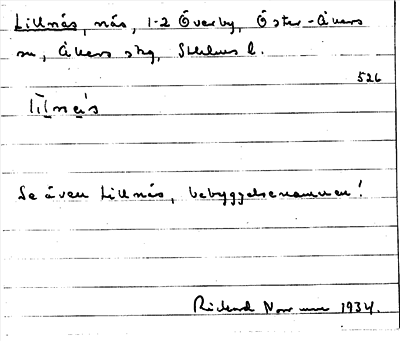 Lillnäs, näs, 1-2 Överby, Öster-Åkers
sn, Åkers skg, Sthlms l.
526
Se även Lillnäs, bebyggelsenamnen!
Rickard 1934.